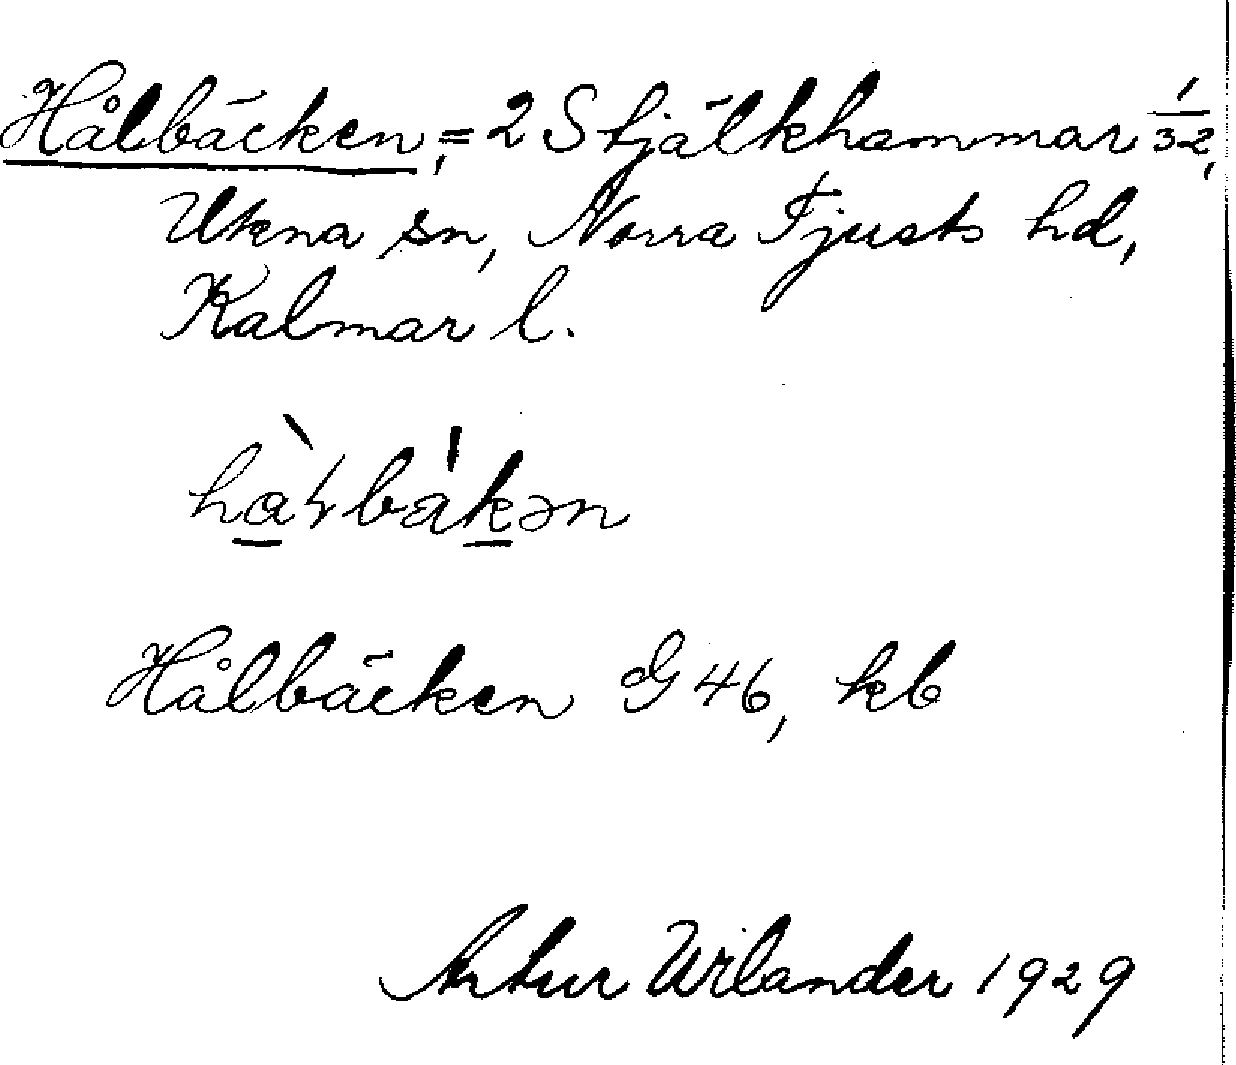 Hålbäcken, = 2 Stjälkhammar 1/32,
Ukna sn, Norra Tjusts hd,
Kalmar l.
Hålbäcken G 46, kb
Artur Urlander 1929